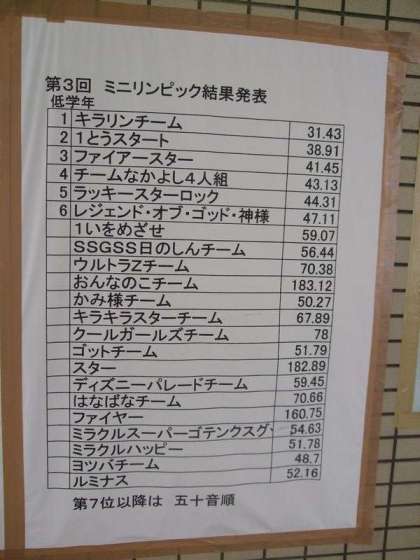 第3回 ミニリンピック結果発表
低学年
1 キラリンチーム 31.43
2 1とうスタート 38.91
3 ファイアースター 41.45
4 チームなかよし4人組 43.13
5 ラッキースターロック 44.31
6 レジェンド・オブ・ゴッド・神様 47.11
1いをめざせ 59.07
SSGSS日のしんチーム 56.44
ウルトラZチーム 70.38
おんなのこチーム 183.12
かみ様チーム 50.27
キラキラスターチーム 67.89
クールガールズチーム 78
ゴットチーム 51.79
スター 182.89
ディズニーパレードチーム 59.45
はなばなチーム 70.66
ファイヤー 160.75
ミラクルスーパーゴテンクスグ 54.63
ミラクルハッピー 51.78
ヨツバチーム 48.7
ルミナス 52.16
第7位以降は 五十音順